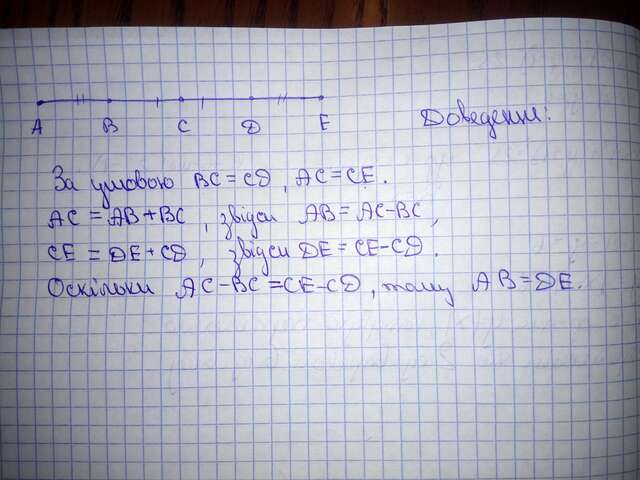 A B C D E
Доведення:
За умовою BC = CD, AC = CE.
AC = AB + BC, звідси AB = AC - BC,
CE = DE + CD, звідси DE = CE - CD.
Оскільки AC - BC = CE - CD, тому AB = DE.